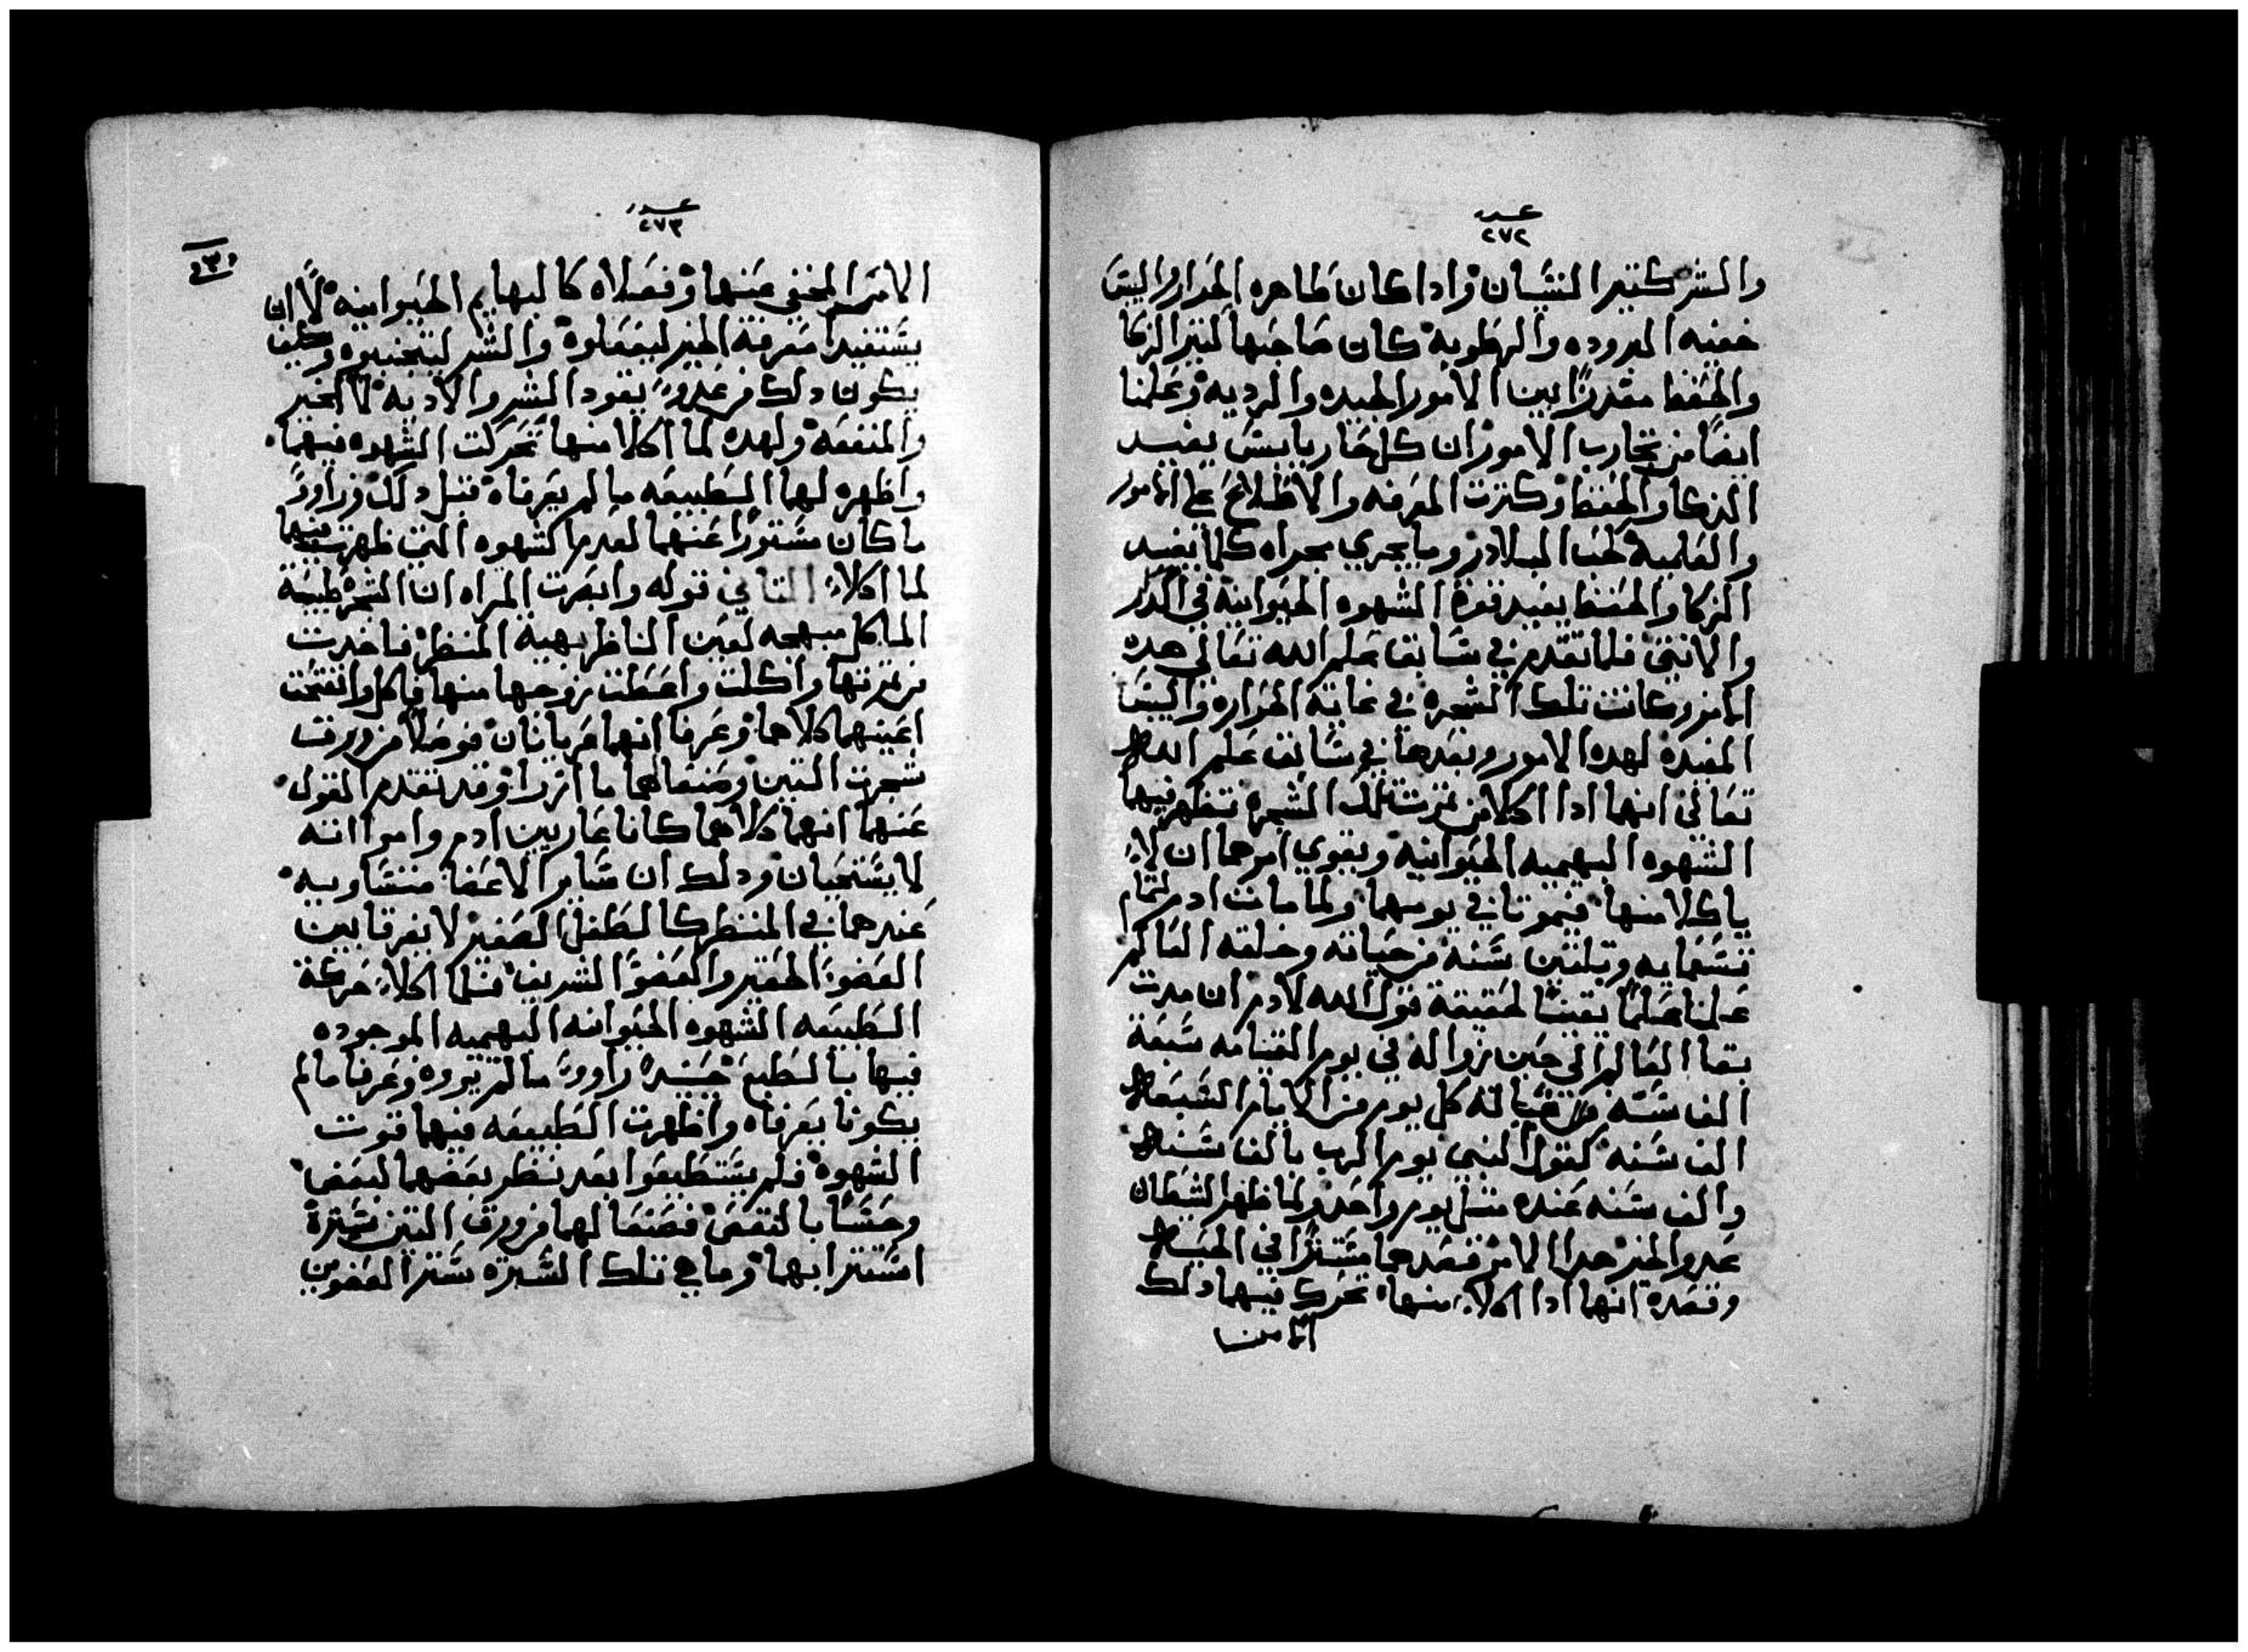 عدد
٢٧٢
والشر كتير النسيان واداكان طاهره الحرار واليبس
خفيه البروده والرطوبه كان صاحبها كتير الزكا
والحفظ مقدرا بين الامور الجيده والرديه وعلمنا
ايضا من تجارب الامور ان كل حار يابس يفيد
الدكا والحفظ وكترت المعرفه والاطلاع على الامور
والعلميه لحب البلادر وما يجري مجراه كلما يفيد
الزكا والحفظ يفيد قوة الشهوه الحيوانيه في الدكر
والانتى فلما تقدم في سابق علم الله تعالى هده
الامور وكانت تلك الشجره في غاية الحراره واليبس
المفيده لهده الامور وبعدها في سابق علم الله
تعالى انهما ادا اكلا من تمرت تلك الشجرة تظهر فيهما
الشهوه البهيميه الحيوانيه ويقوي امرهما ان لا
ياكلا منها فيموتا في يومهما ولما مات ادم لتمام
تسعمايه وتلتين سنه من حياته وخلقه العالم
علمنا علما يقينا لحقيقة قول الله لادم ان مدت
بقا العالم الى حين زواله في يوم القيامه سبعة
الف سنه من قباله كل يوم من الايام السبعه
الف سنه كقول النبي يوم الرب بالف سنه
والف سنه عنده متل يوم واحد ولما ظهر الشيطان
عدو الخير هدا الامر قصدهما مستترا في الحيه
وقصده انهما ادا اكلا منها تحرك فيهما دلك
الامر
عدد
٢٧٣
الامر المخفي عنهما وفضلاه كالبهايم الحيوانيه لا ان
يستفيدا معرفة الخير ليفعلوه والشر ليتجنبوه وكيف
يكون دلك من عدو يقود الشر والاديه لا الخير
والمنفعه ولهده لما اكلا منها تحركت الشهوه فيهما
واظهره لهما الطبيعه ما لم يعرفاه قبل دلك وراوا
ما كان مستورا عنهما لعدم الشهوه التي ظهرت فيهما
لما اكلا التاني قوله وابصرت المراه ان الشجره طيبة
الماكل مبهجه لعين الناظر بهية المنظر فاخدت
من تمرتها واكلت واعطت زوجها منها فاكل وانفتحت
اعينهما كلاهما وعرفا انهما عريانان فوصلا من ورق
شجرت التين وصنعا لهما مازرا وقد تقدم القول
عنهما انهما كلاهما كانا عاريين ادم وامراته
لا يستحيان ودلك ان ساير الاعضا متساويه
عندهما في المنظر كالطفل الصغير لا يفرقا بين
العضو الحقير والعضو الشريف فلما اكلا حركة
الطبيعه الشهوه الحيوانيه البهيميه الموجوده
فيها بالطبع حينيد راوو ما لم يروه وعرفا ما لم
يكونا يعرفاه واظهرت الطبيعه فيهما قوت
الشهوه فلم يستطيعوا بعد نظر بعضهما لبعض
وحسا بالنقص فصنعا لهما من ورق التين سترة
استترا بها وما هي تلك السترة ستر العضوين